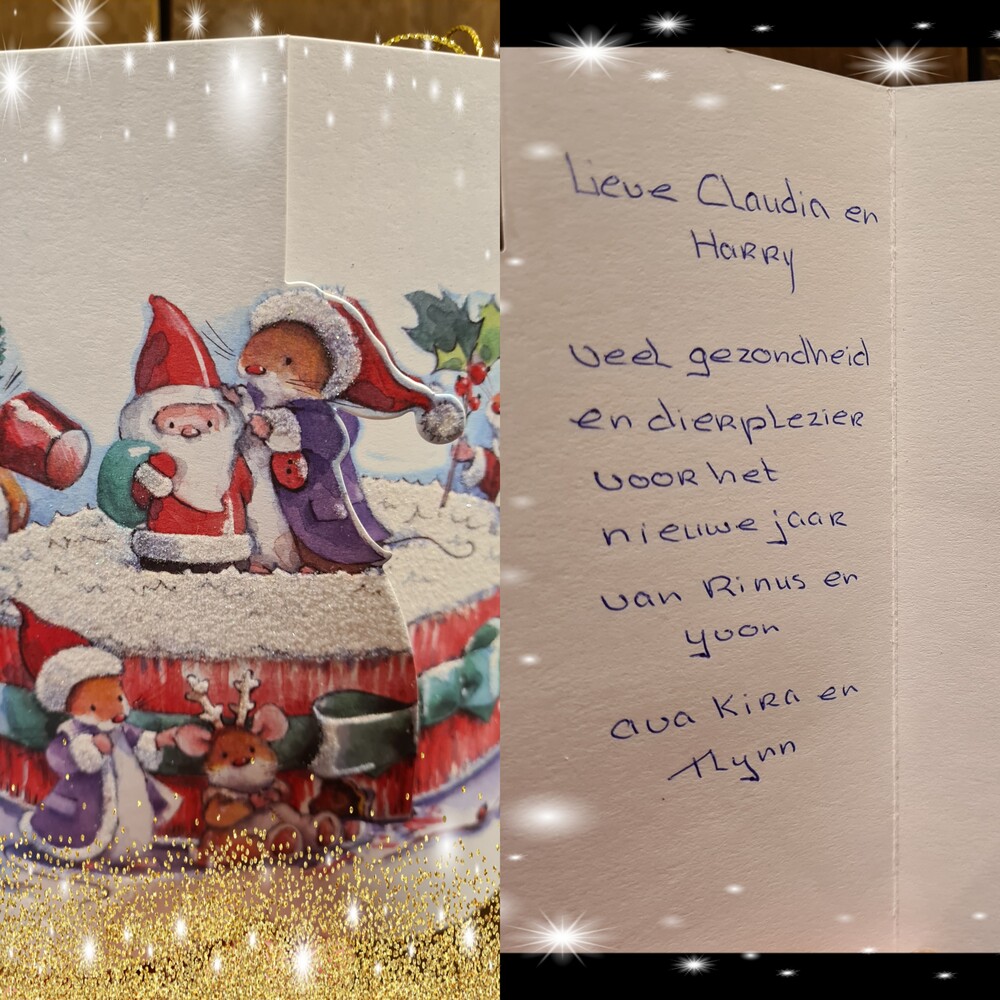 Lieve Claudia en
Harry
veel gezondheid
en dierplezier
voor het
nieuwe jaar
van Rinus en
yvon
ava Kira en